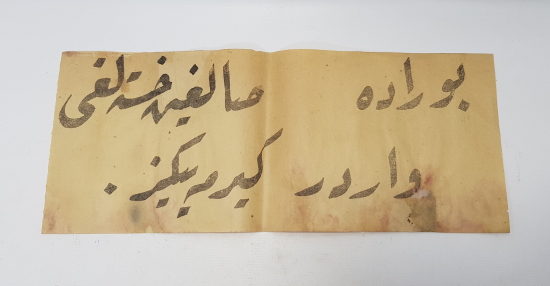 بوراده صالغین خسته‌لغی
واردر کیرمه‌ییکز.